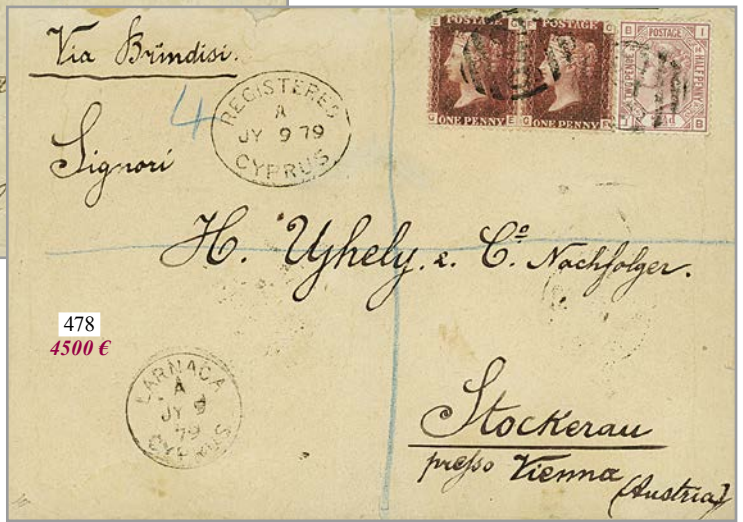 Via Brindisi.
4
REGISTERED
A
JY 9 79
CYPRUS
POSTAGE
ONE PENNY
G E
POSTAGE
ONE PENNY
G
POSTAGE
TWO PENCE HALF PENNY
B I
I B
Signori
H. Ujhely. & Cº Nachfolger.
478
4500 €
LARNACA
A
JY 9
79
CYPRUS
Stockerau
presso Vienna
(Austria)